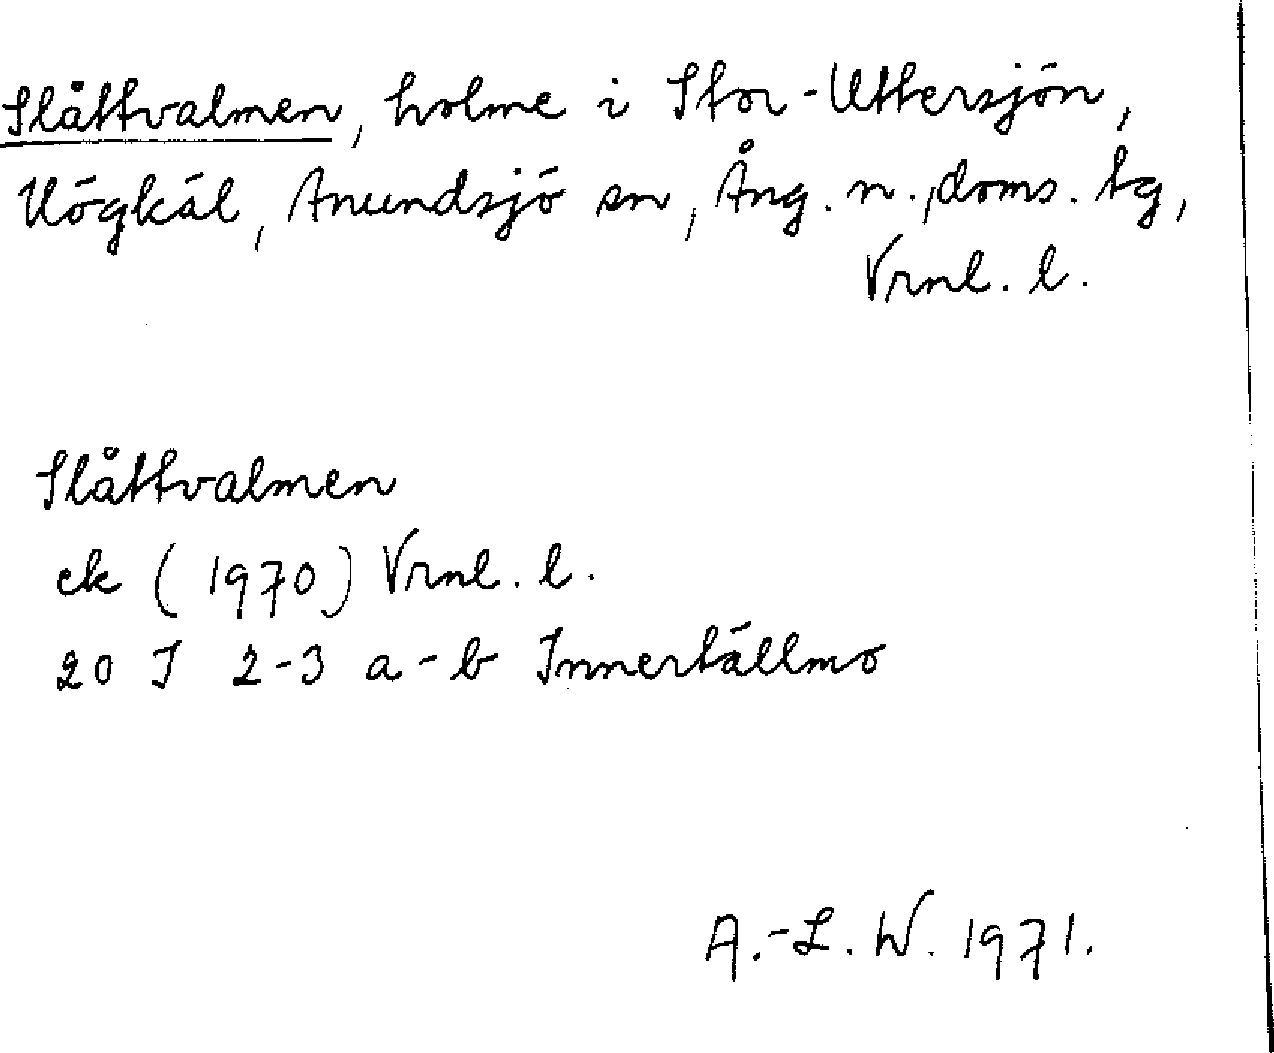 Slåttvalmen, holme i Stor-Uttersjön,
Högkäl, Anundsjö sn, Ång. n., doms. tg,
Vrnl. l.
Slåttvalmen
ek (1970) Vrnl. l.
20 J 2-3 a-b Innertällmo
A.-L. W. 1971.